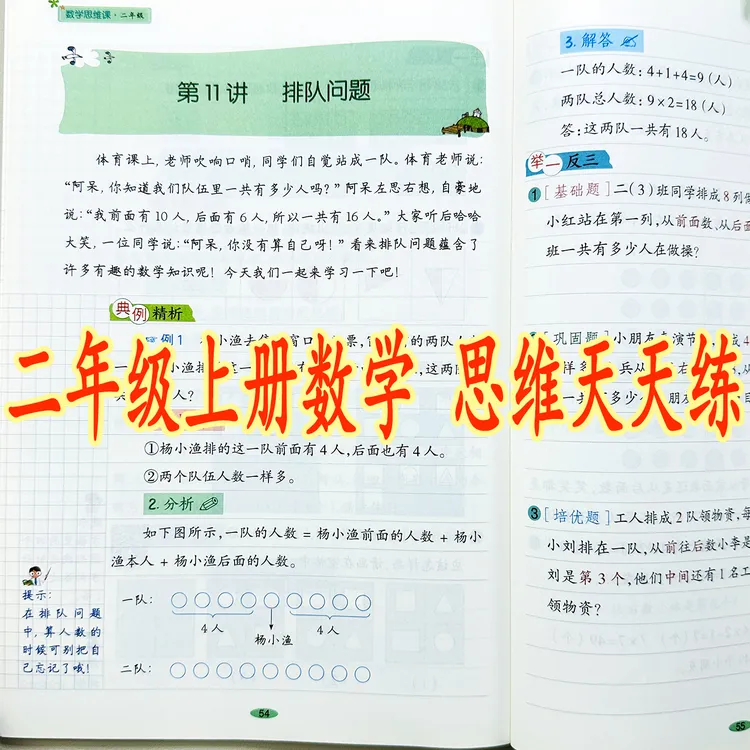 数学思维课·二年级
第11讲 排队问题
体育课上,老师吹响口哨,同学们自觉站成一队。体育老师说:
“阿呆,你知道我们队伍里一共有多少人吗?”阿呆左思右想,自豪地
说:“我前面有10人,后面有6人,所以一共有16人。”大家听后哈哈
大笑,一位同学说:“阿呆,你没有算自己呀!”看来排队问题蕴含了
许多有趣的数学知识呢! 今天我们一起来学习一下吧!
典例精析
例1
二年级上册数学 思维天天练
①杨小渔排的这一队前面有4人,后面也有4人。
②两个队伍人数一样多。
2.分析
如下图所示,一队的人数 = 杨小渔前面的人数 + 杨小
渔本人 + 杨小渔后面的人数。
提示:
在排队问题
中,算人数的
时候可别把自
己忘记了哦!
一队:
4人
4人
杨小渔
二队:
54
3.解答
一队的人数:4+1+4=9(人)
两队总人数:9×2=18(人)
答:这两队一共有18人。
举一反三
1 [基础题] 二(3)班同学排成8列做
小红站在第一列,从前面数、从后面
班一共有多少人在做操?
[巩固题] 小朋友表演节
3 [培优题] 工人排成2队领物资,每
小刘排在一队,从前往后数小李是
刘是第3个,他们中间还有1名工
领物资?
55